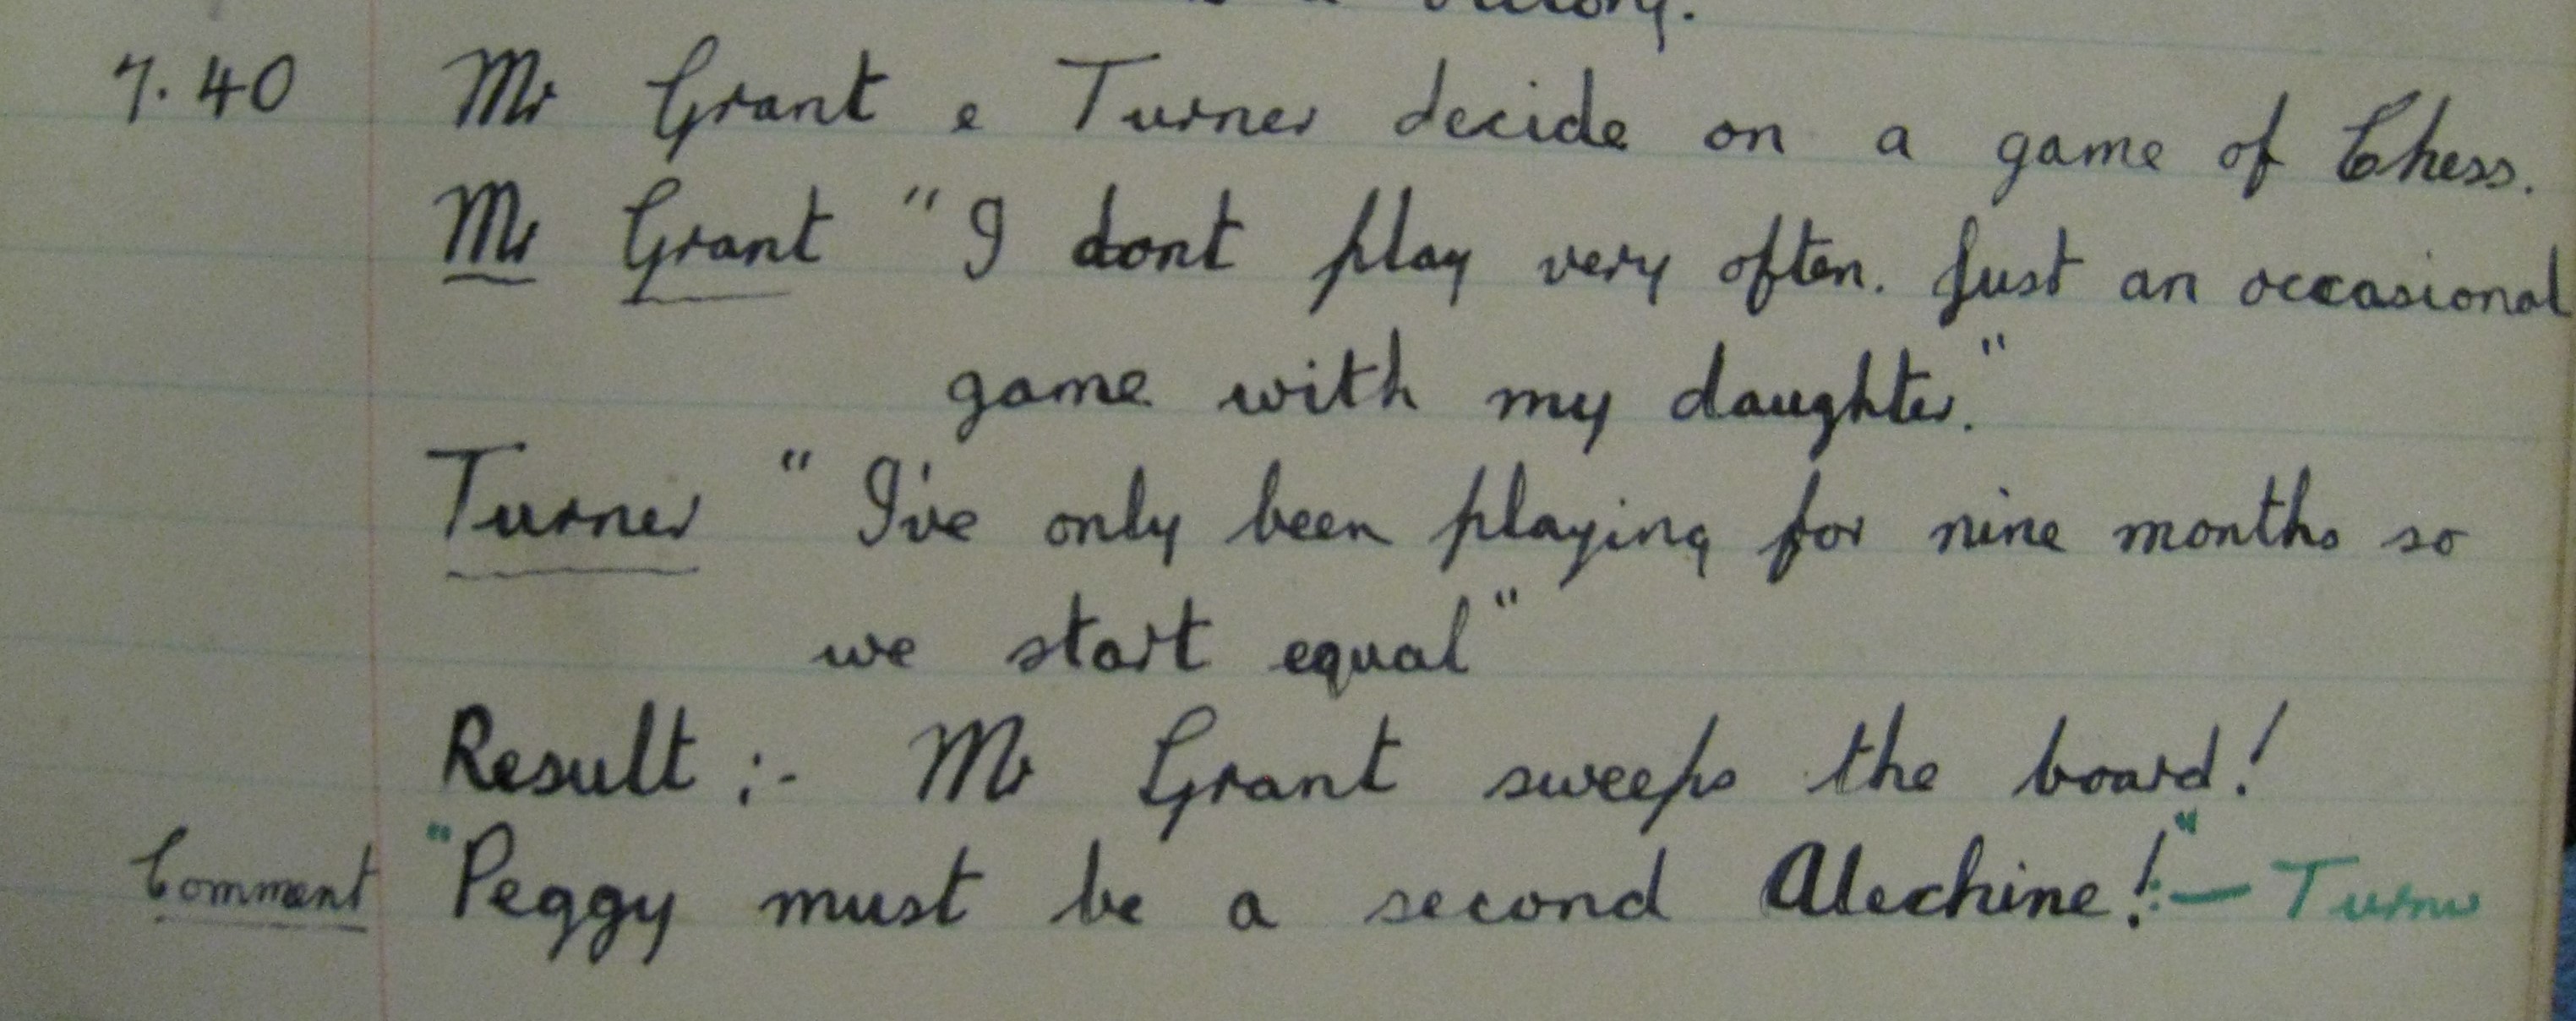 7.40 Mr Grant e Turner decide on a game of Chess.
Mr Grant "I dont play very often. Just an occasional
game with my daughter."
Turner "I've only been playing for nine months so
we start equal"
Result :- Mr Grant sweeps the board!
Comment "Peggy must be a second Alechine!":— Turner